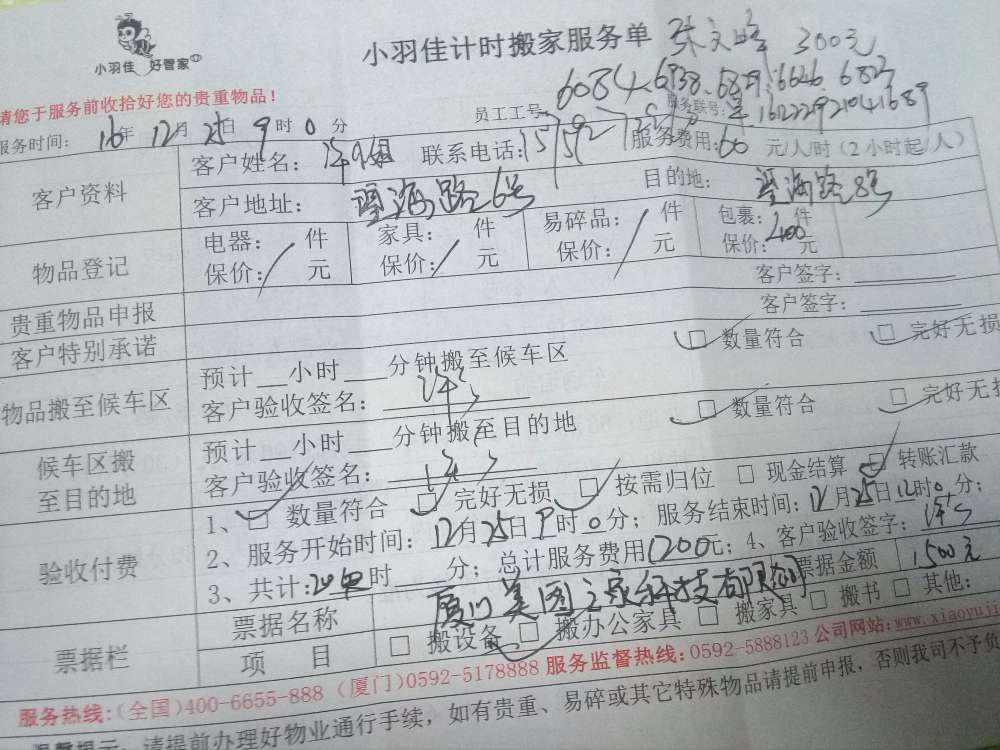 小羽佳 好管家
小羽佳计时搬家服务单 300元
请您于服务前收拾好您的贵重物品!
员工工号 6084 6938 6829 6626 682
服务联号: 161222921041689
服务时间: 16年 12月 25日 9时 0分
客户资料 客户姓名: 联系电话: 服务费用: 60 元/人/时(2小时起/人)
客户地址: 望海路6号 目的地: 望海路8号
物品登记 电器: / 件 家具: / 件 易碎品: / 件 包裹: 件
保价: 元 保价: 元 保价: 元 保价: 400元
贵重物品申报 客户签字:
客户特别承诺 客户签字:
物品搬至候车区 预计__小时__分钟搬至候车区 □ 数量符合 □ 完好无损
客户验收签名:
候车区搬至目的地 预计__小时__分钟搬至目的地 □ 数量符合 □ 完好无损
客户验收签名:
验收付费 1、□ 数量符合 □ 完好无损 □ 按需归位 □ 现金结算 □ 转账汇款
2、服务开始时间: 12月25日9时0分; 服务结束时间: 12月25日12时0分;
3、共计: 时__分; 总计服务费用1200元; 4、客户验收签字:
票据栏 票据名称 厦门美图之家科技有限公司 票据金额 1500元
项 目 □ 搬设备 □ 搬办公家具 □ 搬家具 □ 搬书 □ 其他:
服务热线:(全国)400-6655-888 (厦门)0592-5178888 服务监督热线:0592-5888123 公司网站:www.xiaoyuji
温馨提示: 请提前办理好物业通行手续,如有贵重、易碎或其它特殊物品请提前申报,否则我司不予负